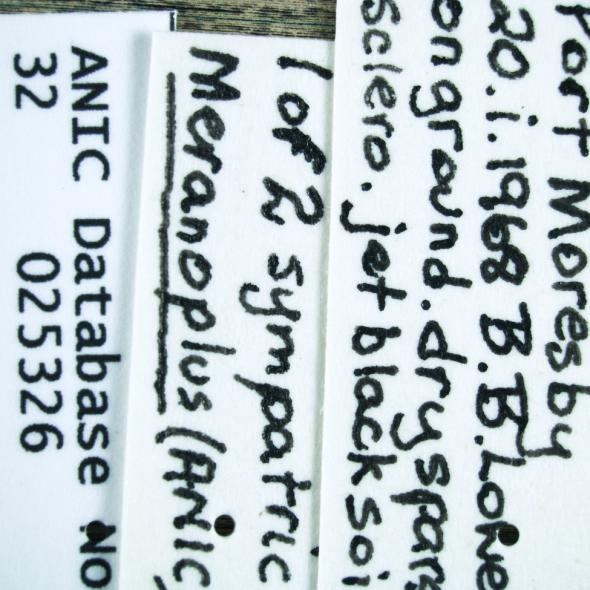 Port Moresby
20.i.1968 B.B.Lowe
on ground. dry spars
sclero. jet black soi
1 of 2 sympatric
Meranoplus (ANIC
ANIC Database No
32 025326